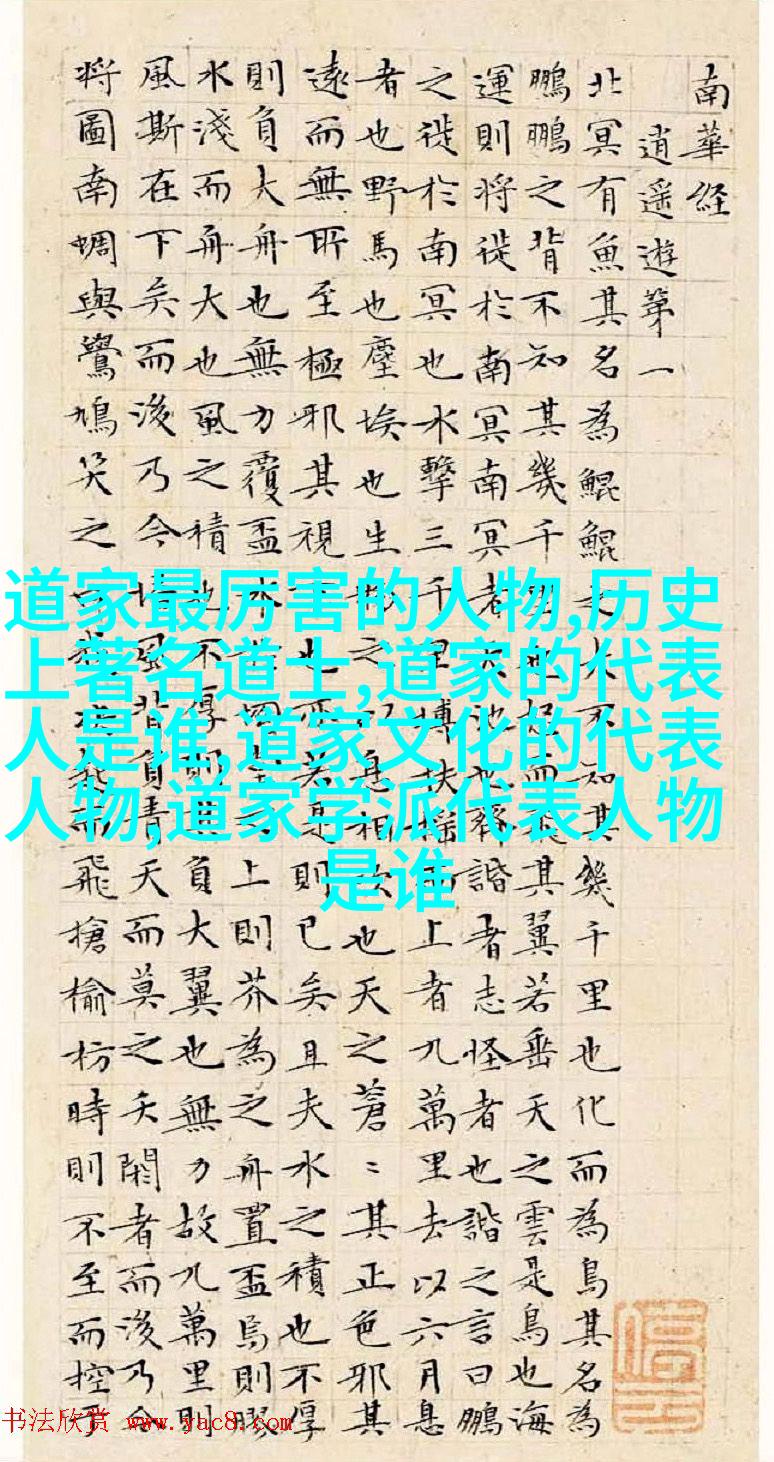 南華経
逍遥遊第一
北冥有魚其名為鯤鯤之大不知其幾千里也化而為鳥其名為
鵬鵬之背不知其幾千里也怒而飛其翼若垂天之雲是鳥也海
運則将徙於南冥南冥者天池也齊諧者志怪者也諧之言曰鵬
之徙於南冥也水擊三千里摶扶揺而上者九萬里去以六月息
者也野馬也塵埃也生物之以息相吹也天之蒼〻其正色邪其
遠而無所至極邪其視下也亦若是則已矣且夫水之積也不厚
則負大舟也無力覆盃水上則芥為之舟置盃焉則膠
水淺而舟大也風之積也不厚則其負大翼也無力故九萬里則
風斯在下矣而後乃今培風背負青天而莫之夭閼者而後乃今
将圖南蜩與鷽鳩笑之曰我而飛搶榆枋時則不至而控於
道家最厉害的人物,历史
上著名道士,道家的代表
人是谁,道家文化的代表
人物,道家学派代表人物
是谁
书法欣赏 www.yac8.com